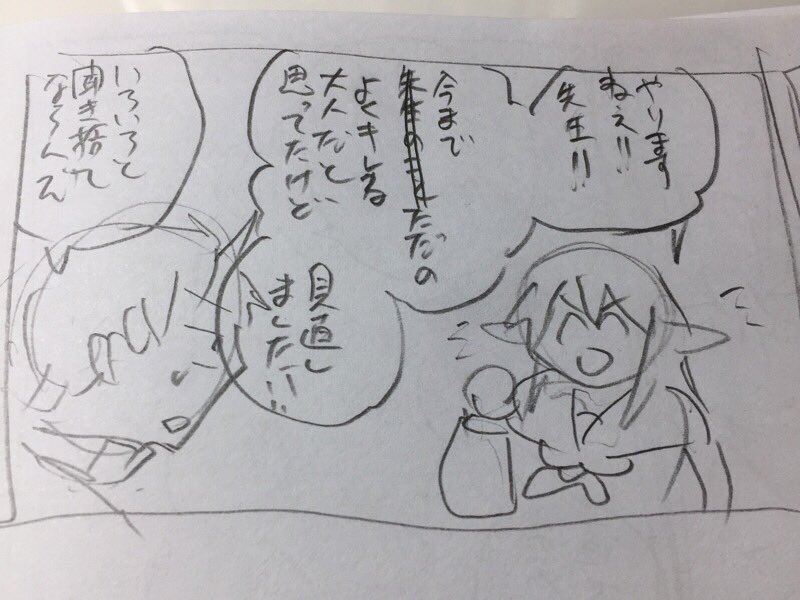 やります
ねえ!!
先生!!
今まで
ただの
よくキレる
大人だと
思ってたけど
見直し
ました!!
いろいろと
聞き捨て
ならんぞ